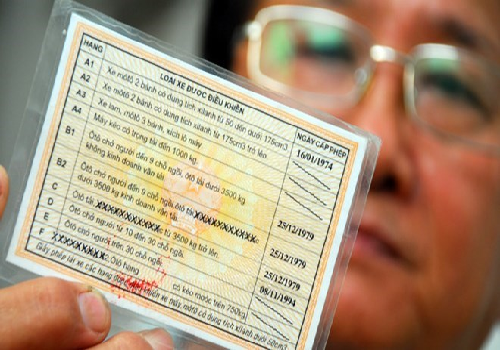 HẠNG LOẠI XE ĐƯỢC ĐIỀU KHIỂN NGÀY CẤP PHÉP
A1 Xe môtô 2 bánh có dung tích xilanh từ 50 đến dưới 175cm3 16/01/1974
A2 Xe môtô 2 bánh có dung tích xilanh từ 175cm3 trở lên.
A3 Xe lam, môtô 3 bánh, xích lô máy
A4 Máy kéo có trọng tải đến 1000 kg.
B1 Ôtô chở người đến 9 chỗ ngồi, ôtô tải dưới 3500 kg
không kinh doanh vận tải. 25/12/1979
B2 Ôtô chở người đến 9 chỗ ngồi, ôtô tải
dưới 3500 kg kinh doanh vận tải. 25/12/1979
C Ôtô tải từ 3500 kg trở lên. 25/12/1979
D Ôtô chở người từ 10 đến 30 chỗ ngồi. 08/11/1994
E Ôtô chở người trên 30 chỗ ngồi.
F Ôtô hạng có kéo moóc trên 750kg
Giấy phép lái xe các hạng môtô có dung tích xilanh dưới 50cm3